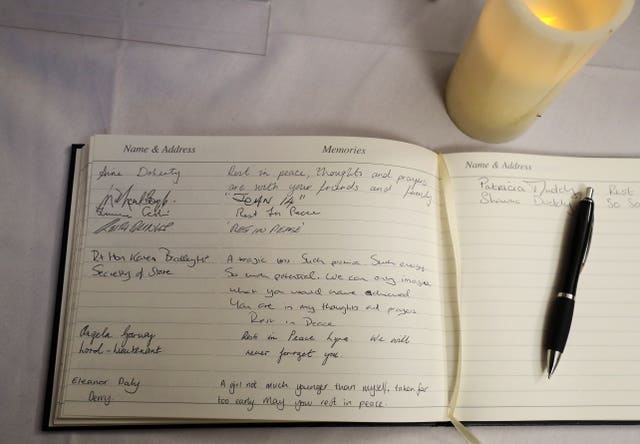 Name & Address Memories
Anne Doherty Rest in peace, thoughts and prayers
are with your friends and family
"JOHN 14"
Rest In Peace
'REST IN PEACE'
Rt Hon Karen Bradley MP A tragic loss Such promise Such energy
Secretary of State So much potential. We can only imagine
what you would have achieved
You are in my thoughts and prayers
Rest in Peace
Angela Garvey Rest in Peace Lyra. We will
Lord-Lieutenant never forget you.
Eleanor Daly A girl not much younger than myself, taken far
Derry. too early May you rest in peace.
Name & Address
Patricia Duddy Rest
Shauna Duddy So So